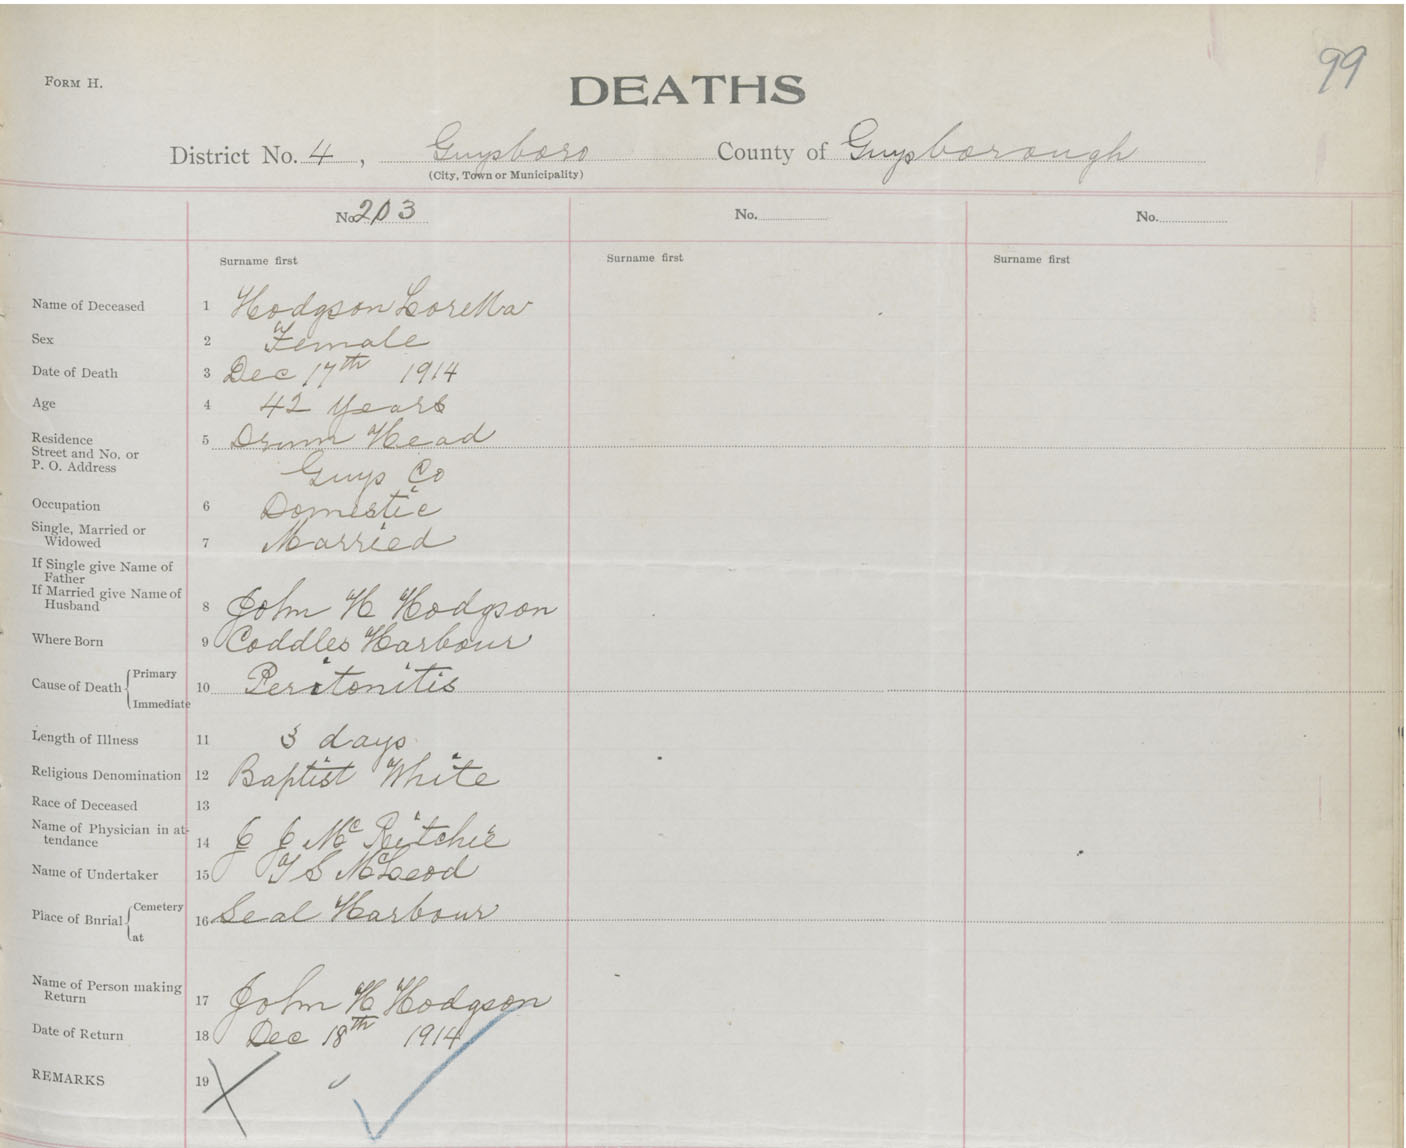 99
FORM H.
DEATHS
District No. 4, Guysboro County of Guysborough
(City, Town or Municipality)
No. 203 No. No.
Surname first Surname first Surname first
Name of Deceased 1 Hodgson Loretta
Sex 2 Female
Date of Death 3 Dec 17th 1914
Age 4 42 years
Residence 5 Drum Head
Street and No. or
P. O. Address Guys Co
Occupation 6 Domestic
Single, Married or
Widowed 7 Married
If Single give Name of
Father
If Married give Name of
Husband 8 John H Hodgson
Where Born 9 Coddles Harbour
Cause of Death { Primary
10 Peritonitis
Immediate
Length of Illness 11 3 days
Religious Denomination 12 Baptist White
Race of Deceased 13
Name of Physician in at-
tendance 14 J J McRitchie
Name of Undertaker 15 McLeod
Place of Burial { Cemetery
16 Seal Harbour
at
Name of Person making
Return 17 John H Hodgson
Date of Return 18 Dec 18th 1914
REMARKS 19